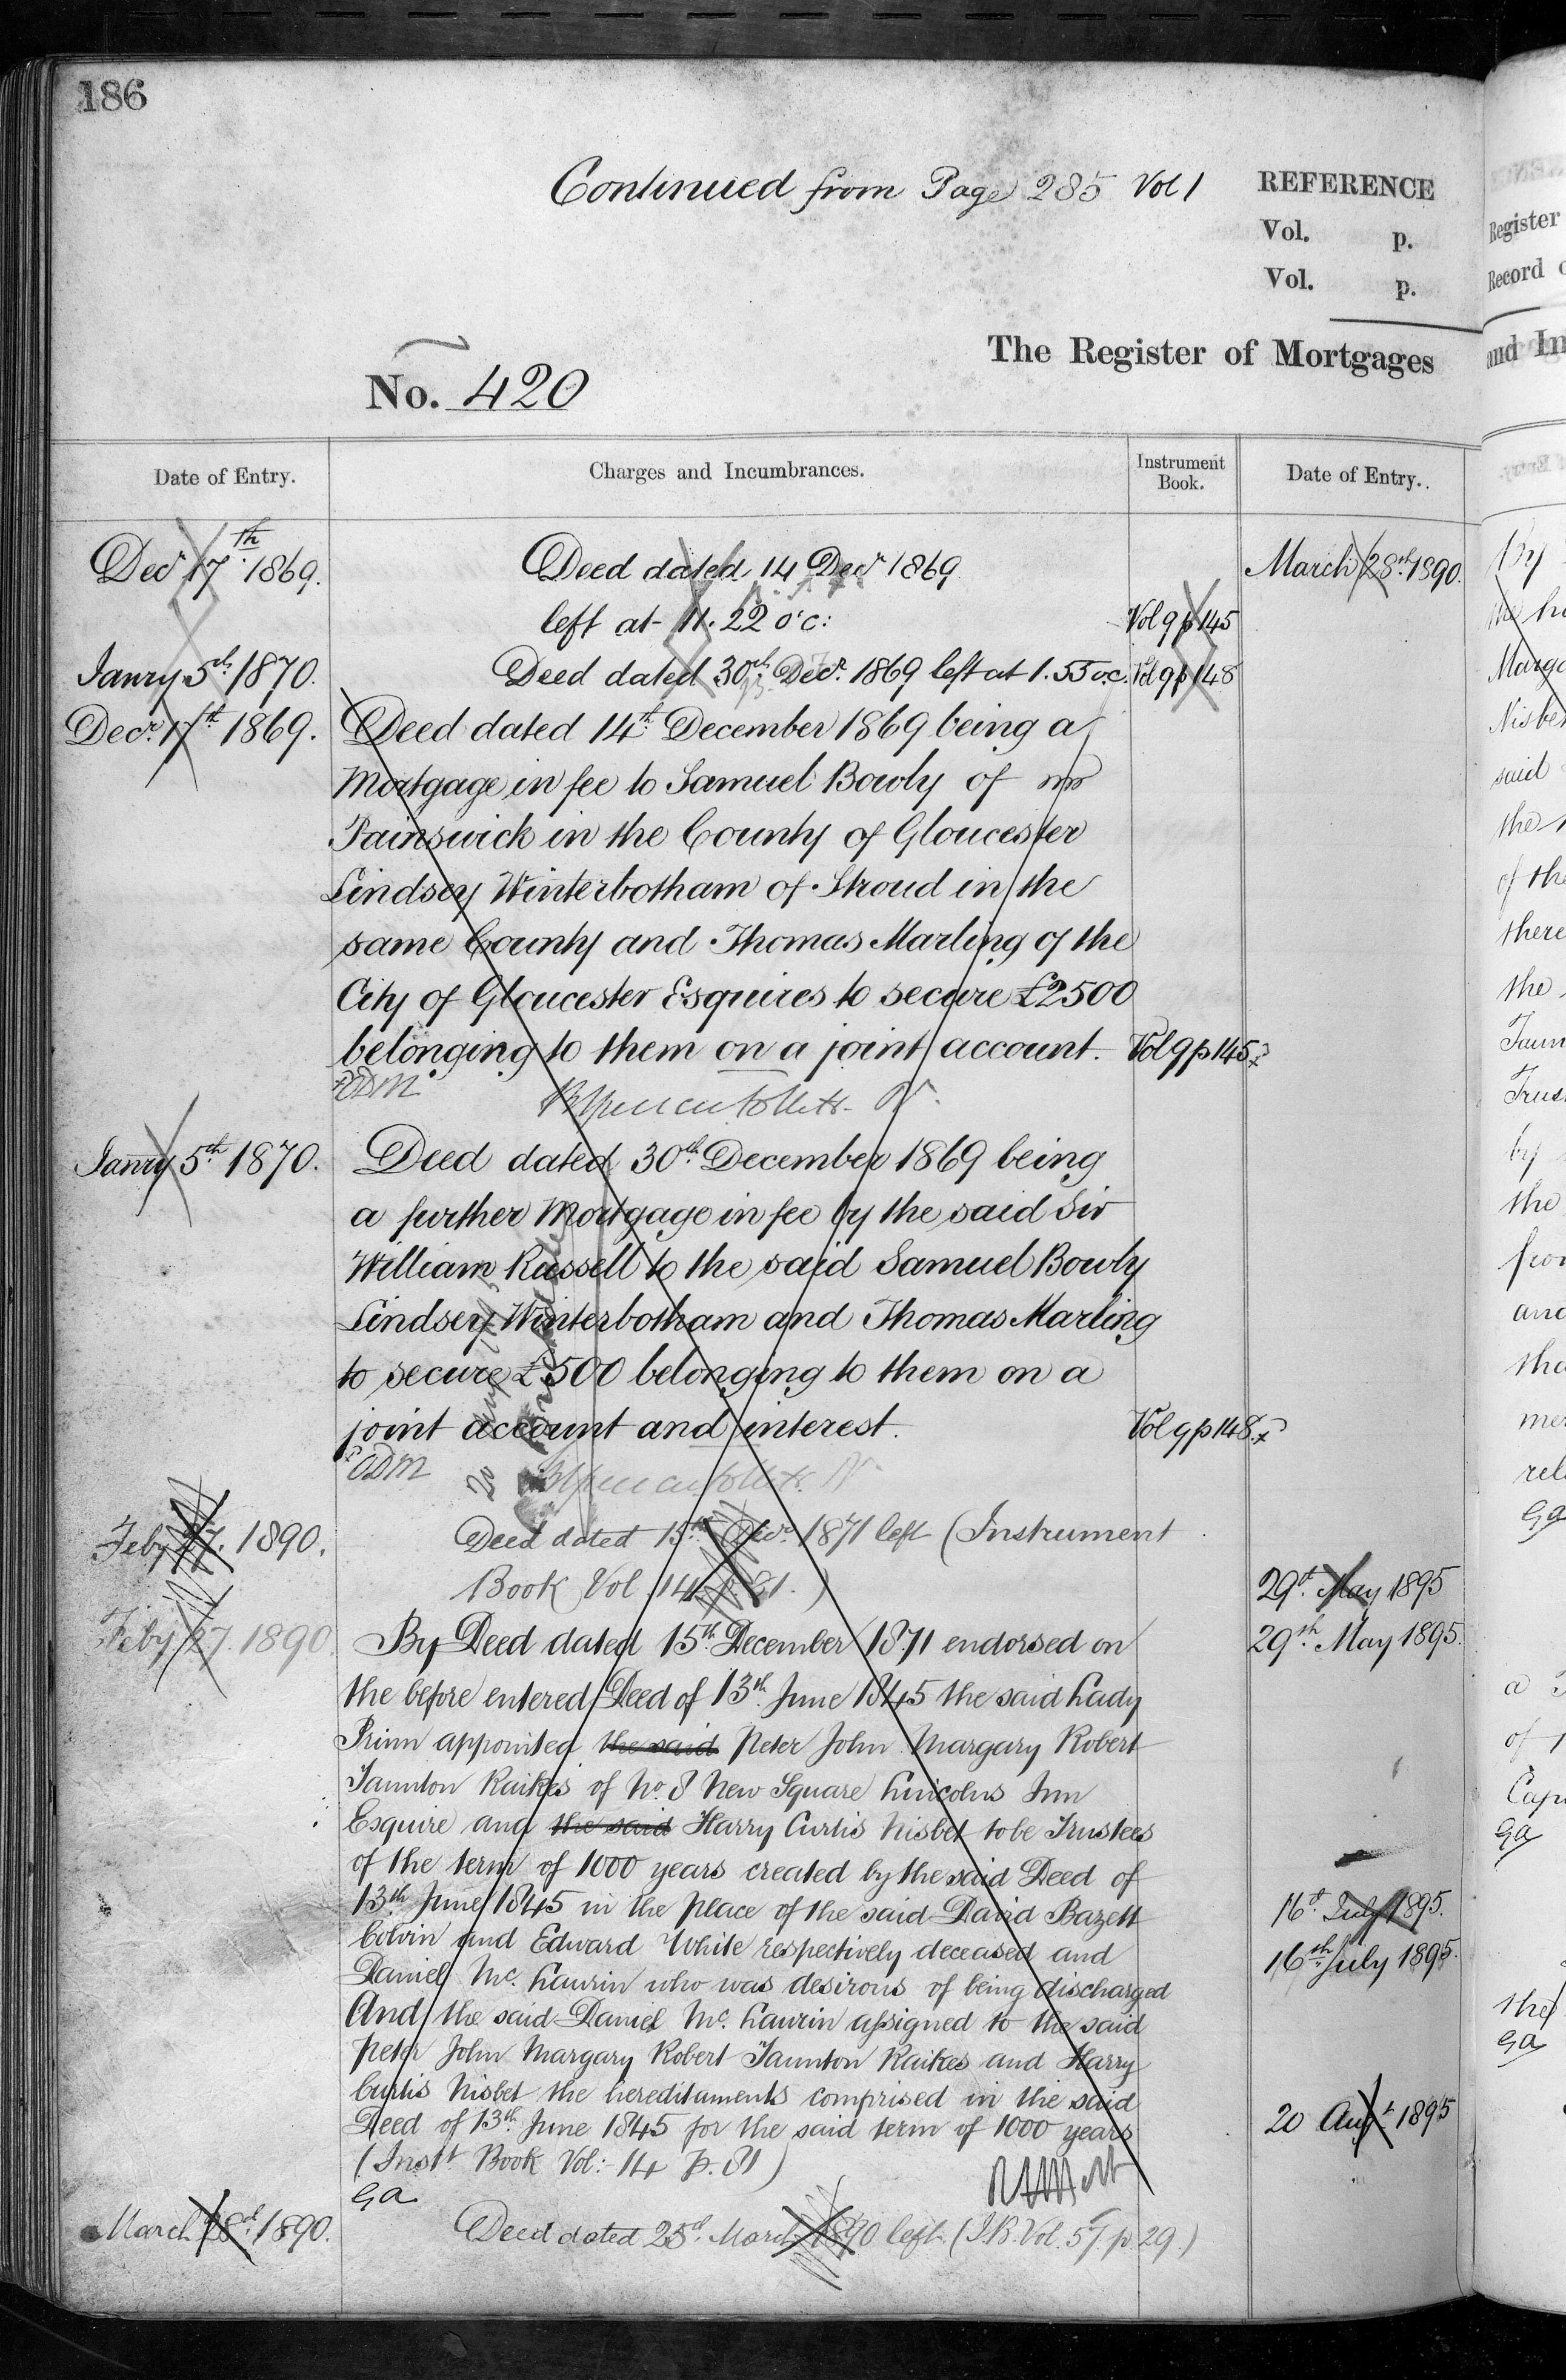 186
Continued from Page 285 Vol 1
REFERENCE
Vol. p.
Vol. p.
The Register of Mortgages
No. 420
Date of Entry.
Charges and Incumbrances.
Instrument Book.
Date of Entry.
Decr 17th 1869. Deed dated 14 Decr 1869
left at 11.22 o'c: Vol 9 p 145
Janry 5th 1870. Deed dated 30th Decr. 1869 left at 1.55 o.c. Vol 9 p 148
Decr. 17th 1869. Deed dated 14th December 1869 being a
Mortgage in fee to Samuel Bowly of
Painswick in the County of Gloucester
Lindsey Winterbotham of Stroud in the
same County and Thomas Marling of the
City of Gloucester Esquires to secure £2500
belonging to them on a joint account. Vol 9 p 145
ODM
Janry 5th 1870. Deed dated 30th December 1869 being
a further Mortgage in fee by the said Sir
William Russell to the said Samuel Bowly
Lindsey Winterbotham and Thomas Marling
to secure £500 belonging to them on a
joint account and interest. Vol 9 p 148.
ODM
Feby 27. 1890. Deed dated 15th Decr. 1871 left (Instrument
Book Vol 14 p. 81.)
Feby 27. 1890 By Deed dated 15th December 1871 endorsed on
the before entered Deed of 13th June 1845 the said Lady
Prinn appointed the said Peter John Margary Robert
Taunton Raikes of No. 8 New Square Lincolns Inn
Esquire and the said Harry Curtis Nisbet to be Trustees
of the term of 1000 years created by the said Deed of
13th June 1845 in the place of the said David Bazett
Colvin and Edward White respectively deceased and
Daniel Mc. Laurin who was desirous of being discharged
And the said Daniel Mc. Laurin assigned to the said
Peter John Margary Robert Taunton Raikes and Harry
Curtis Nisbet the hereditaments comprised in the said
Deed of 13th June 1845 for the said term of 1000 years
(Instt. Book Vol: 14 p. 81)
GA
March 28th 1890. Deed dated 25th March 1890 left (I.B. Vol. 57 p. 29.)
March 28th 1890.
29th May 1895
29th May 1895.
16th July 1895.
16th July 1895.
20 Augt 1895
Register
Record
and In